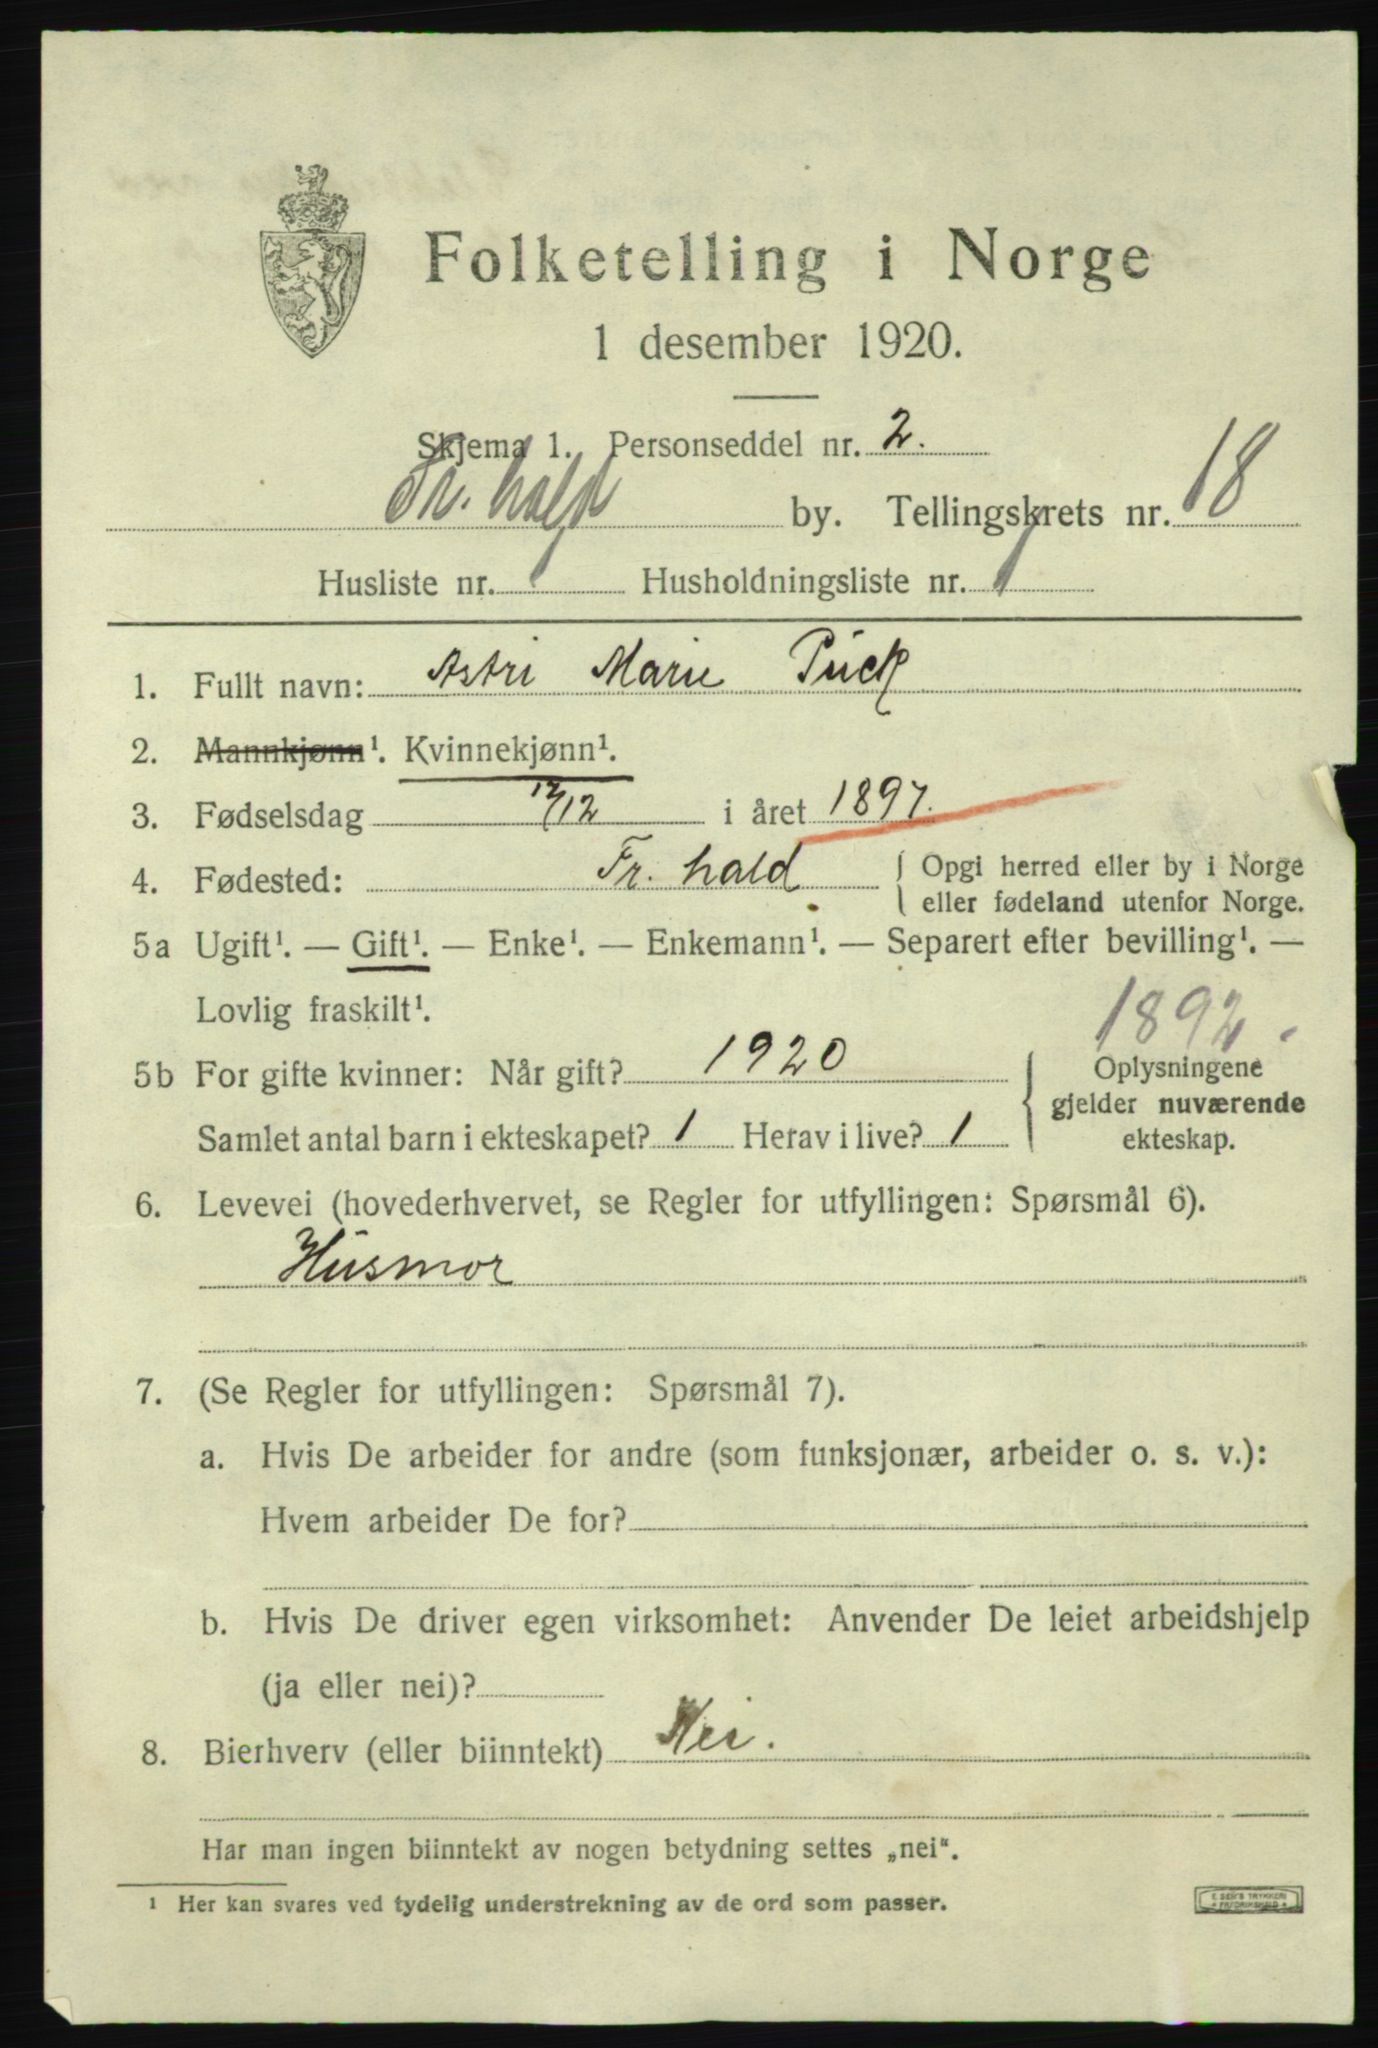 Folketelling i Norge
1 desember 1920.
Skjema 1. Personseddel nr. 2.
Fr.hald by. Tellingskrets nr. 18
Husliste nr. 1 Husholdningsliste nr. 1
1. Fullt navn: Astri Marie Pück
2. Mannkjønn¹. Kvinnekjønn¹.
3. Fødselsdag 12/12 i året 1897.
4. Fødested: Fr. hald { Opgi herred eller by i Norge
eller fødeland utenfor Norge.
5a Ugift¹. — Gift¹. — Enke¹. — Enkemann¹. — Separert efter bevilling¹. —
Lovlig fraskilt¹.
1892.
5b For gifte kvinner: Når gift? 1920 { Oplysningene
gjelder nuværende
Samlet antal barn i ekteskapet? 1 Herav i live? 1
ekteskap.
6. Levevei (hovederhvervet, se Regler for utfyllingen: Spørsmål 6).
Hüsmor
7. (Se Regler for utfyllingen: Spørsmål 7).
a. Hvis De arbeider for andre (som funksjonær, arbeider o. s. v.):
Hvem arbeider De for?
b. Hvis De driver egen virksomhet: Anvender De leiet arbeidshjelp
(ja eller nei)?
8. Bierhverv (eller biinntekt) Nei.
Har man ingen biinntekt av nogen betydning settes „nei“.
1 Her kan svares ved tydelig understrekning av de ord som passer.